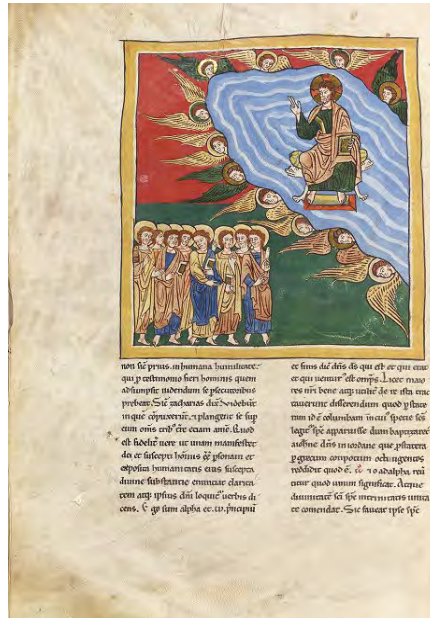 non sic̄ prius in humana humilitate.
qui p testimonio fieri hominis quem
adsumpsit uidendum se psecutoribus
prebeat. Sic̄ zacharias dic̄. uidebūt
in quē cōpūxerūt. & plangent se sup
eum om̄s
est fidelit
do. et suscepti
exposita humanitatis eius suscepta
diuine substantie enunciat clarita
tem atq; ipsius dn̄i loquit᷑ uerbis di
cens. Ego sum alpha et .ω. principiū
et finis dic̄ dn̄s ds̄ qui est et qui erat
et qui uentur᷒ est omp̄s. Licet maio
res nr̄i bene atq; utilit̄ de re ista trac
tauerunt disserendum quod p state
ram id ē columbam in cui᷒ specie sc̄s
legit᷑ sp̄s apparuisse dum baptizaret᷑
a ioh̄ne dn̄s in iordane que p statera
p grecum compotum octingentos
reddidit quod ē. ad alpha reu
titur quod unum significat. Atque
diuinitatē sc̄i sp̄s in trinitatis unita
te comendat. Sic ipse sp̄s